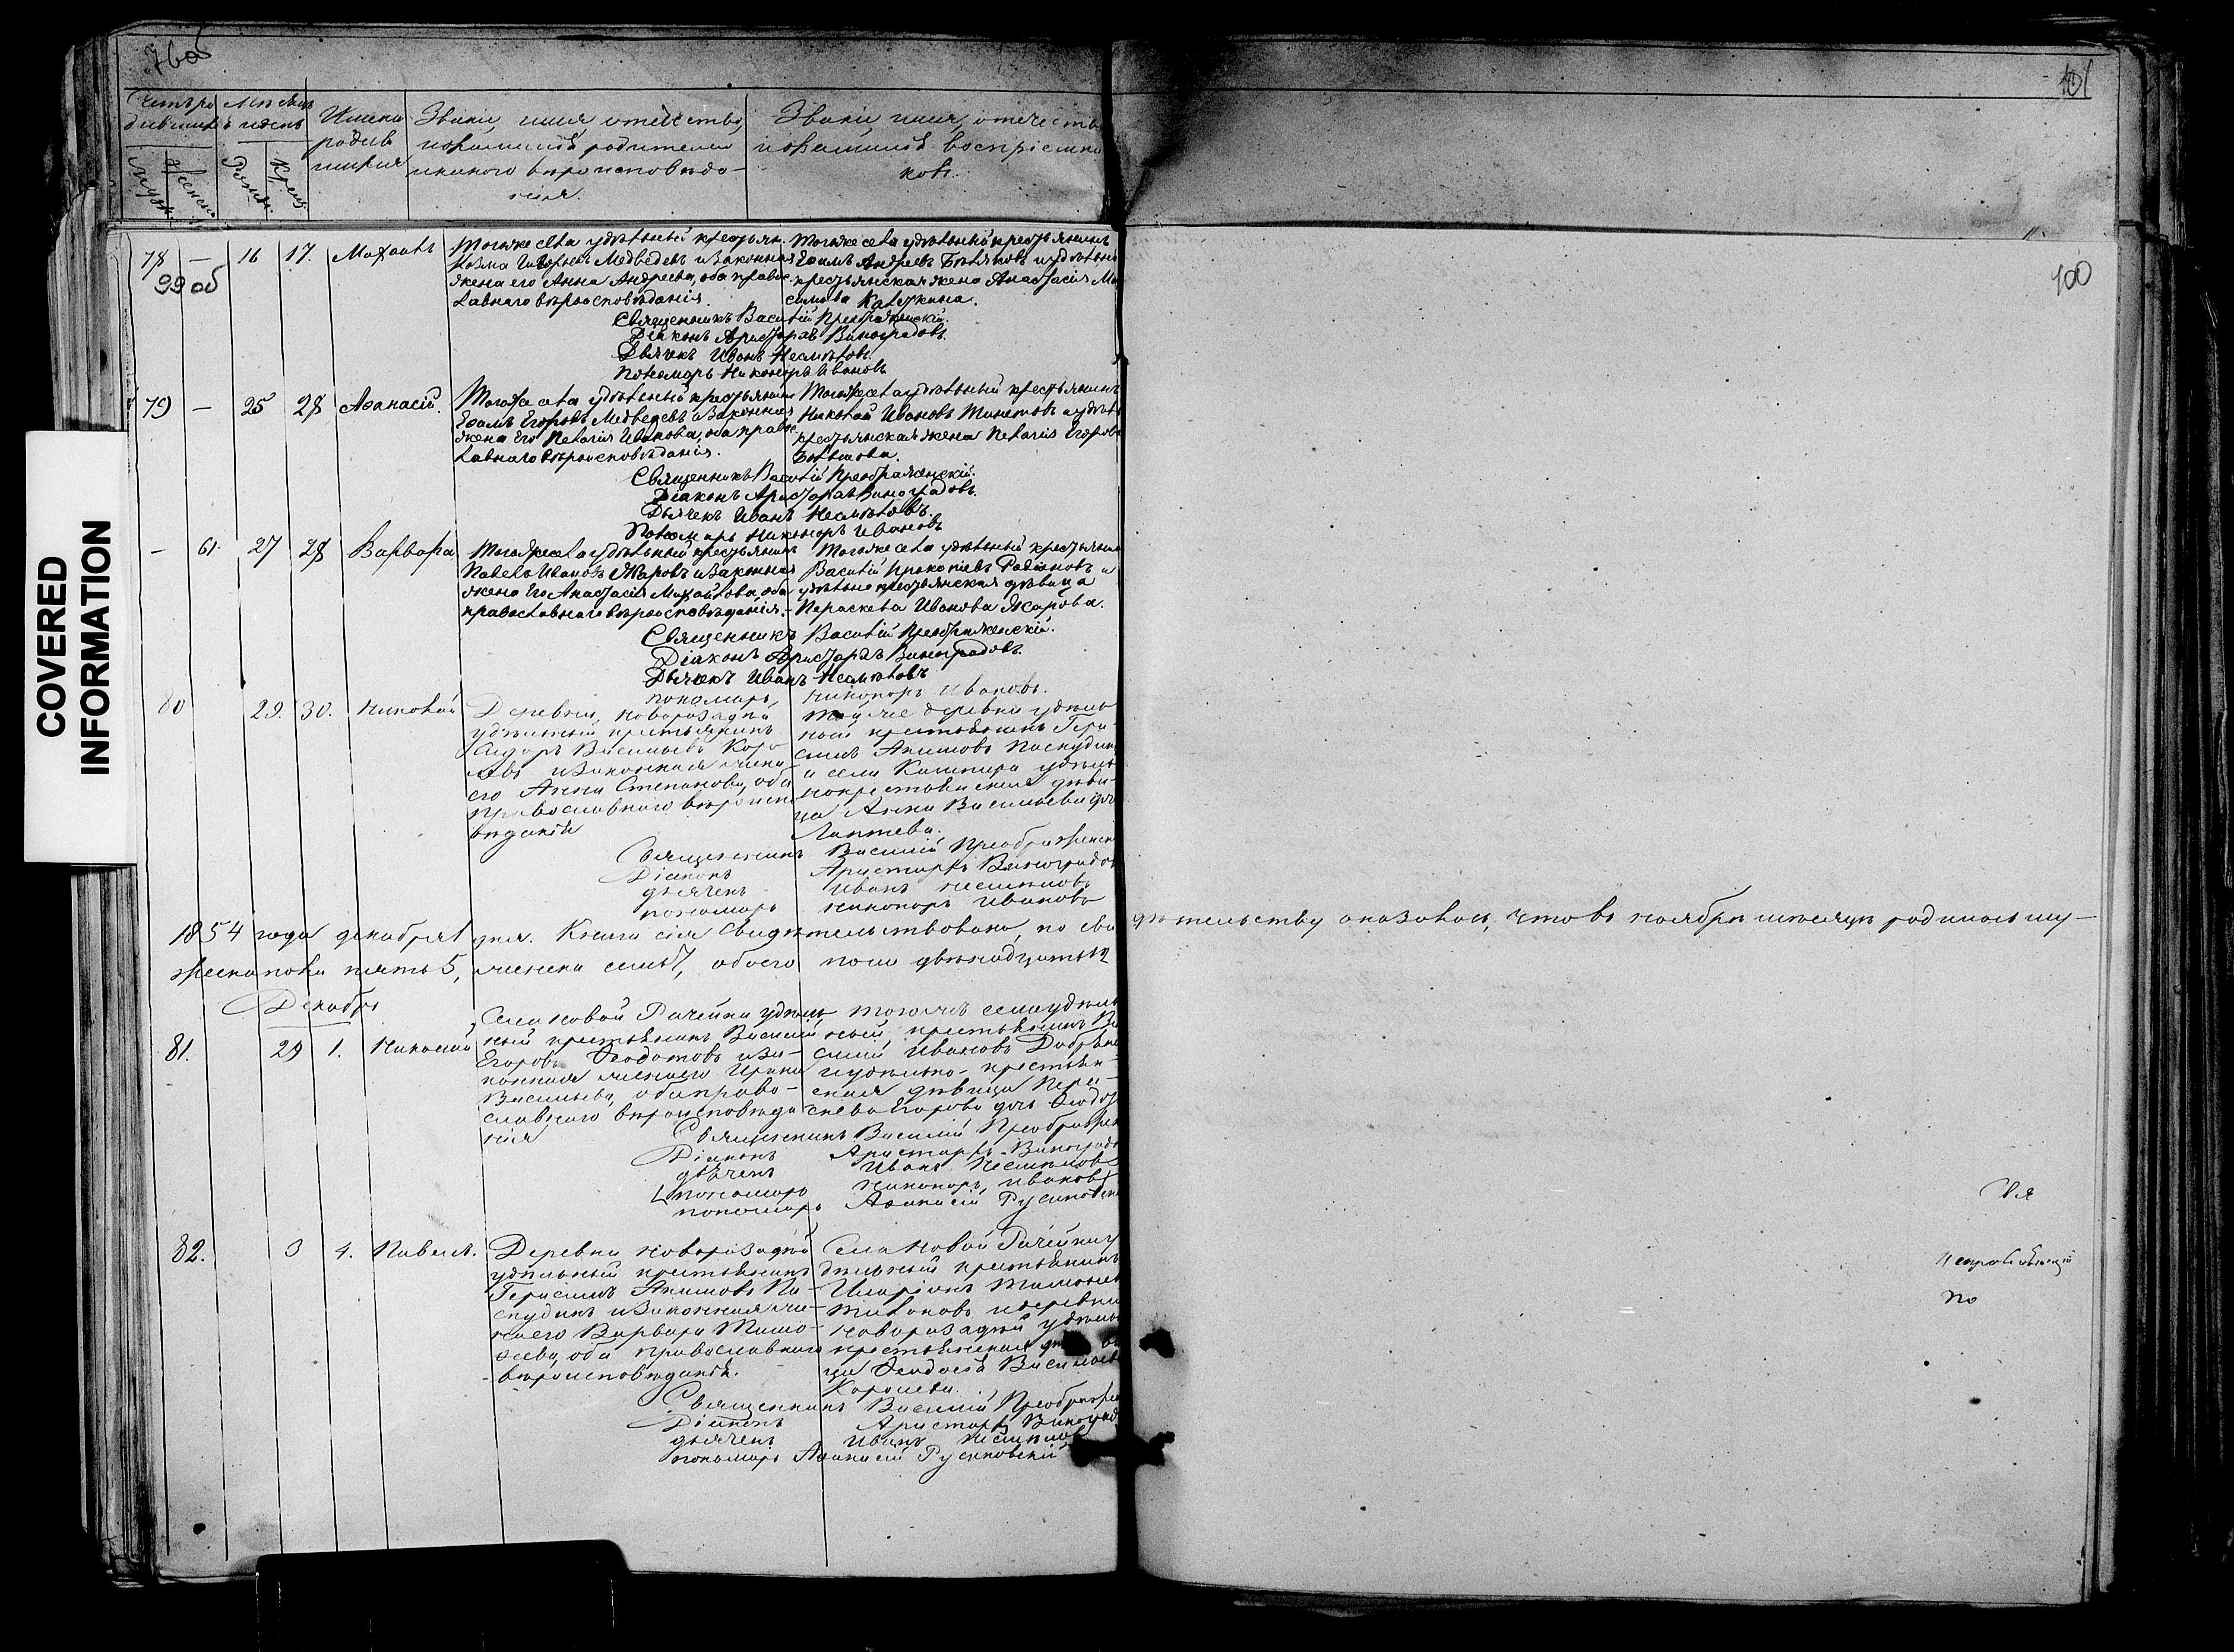 76об
101
100
99 об
Счетъ ро дившихся
Мѣсяцъ и день
Имена родив шихся
Званіе, имя, отечество, и фамилія родителей и какого вѣроисповѣда- нія.
Званіе, имя, отечество и фамилія воспріемни ковъ.
Муж.
Женск.
Рожд.
Крещ.
78 — 16 17. Михаилъ
Тогоже села удѣльный крестьян.
Козма Егоровъ Медведевъ и законная
жена его Анна Андреева, оба правос
лавнаго вѣроисповѣданія.
Тогоже села удѣльный крестьянинъ
Ефимъ Андреевъ и удѣльно
крестьянская жена Анастасія Ма
симова Калужкина.
Священникъ Василій Преображенскій.
Діаконъ Аристархъ Виноградовъ.
Дьячекъ Иванъ Несмѣловъ.
Пономарь Никоноръ Ивановъ
79 — 25 28 Афанасій.
Тогоже села удѣльный крестьянинъ
Ефимъ Егоровъ Медведевъ и законная
жена его Пелагія Иванова, оба правос
лавнаго вѣроисповѣданія.
Тогоже села удѣльный крестьянинъ
Николай Ивановъ и удѣль
крестьянская жена Пелагія Егорова
Священникъ Василій Преображенскій.
Діаконъ Аристархъ Виноградовъ.
Дьячекъ Иванъ Несмѣловъ.
Пономарь Никоноръ Ивановъ
— 61. 27 28 Варвара
Тогоже села удѣльный крестьянинъ
Павелъ Ивановъ Жаровъ и законная
жена его Анастасія Михайлова, оба
православнаго вѣроисповѣданія.
Тогоже села удѣльный крестьянин
Василій Прокопіевъ Родіоновъ и
удѣльно крестьянская дѣвица
Параскева Иванова Жарова.
Священникъ Василій Преображенскій.
Діаконъ Аристархъ Виноградовъ.
Дьячекъ Иванъ Несмѣловъ
пономарь, Никоноръ Ивановъ.
80 29. 30. Николай
Деревни, Новорозадкѣ
удѣльный крестьянинъ
Сидоръ Васильевъ Коро
левъ и законная жена
его Анна Степанова, оба
православнаго вѣроиспо
вѣданія
Той же деревни удѣль
ной крестьянинъ Гера-
симъ Акимовъ Паскудинъ
и села Кашпира удѣль
нокрестьянская дѣви-
ца Анна Васильева дочь
Лаптева.
Священникъ Василій Преображенск
Діаконъ Аристархъ Виноградов
дьячекъ Иванъ Несмѣловъ
пономарь Никоноръ Ивановъ
1854 года декабря 1 дня. Книга сія свидѣтельствована, по сви дѣтельству оказалось, что въ ноябрѣ мѣсяцѣ родилось му-
жеска пола пять 5, женска семь 7, обоего пола двѣнадцать 12
Декабрь
81. 29 1. Николай
Села Новой Рачейки удѣль
ный крестьянинъ Василій
Егоровъ Ѳеодотовъ и за-
конная жена его Ирина
Васильева, оба право-
славнаго вѣроисповѣда
нія
Тогожъ села удѣль
ной, крестьянинъ Ва
силій Ивановъ
и удѣльно- крестьян-
ская дѣвица Пара-
скева Егорова дочь Ѳеодо
Священникъ Василій Преображен
Діаконъ Аристархъ Виноградо
дьячекъ Иванъ Несмѣловъ
пономарь Никоноръ, Ивановъ
пономарь Афанасій Русановск
82. 3 4. Павелъ.
Деревни Новорозадкѣ
удѣльный крестьянинъ
Герасимъ Акимовъ Па-
скудинъ и законная же-
на его Варвара Тимо-
феева, оба православнаго
вѣроисповѣданія.
Села Новой Рачейки у
дѣльный крестьянинъ
Иларіонъ
и деревни
Новорозадкѣ удѣль
крестьянская
ца Ѳеодосья Васильев
Королева.
Священникъ Василій Преображен
Діаконъ Аристархъ Виноград
дьячекъ Иванъ Несмѣловъ
пономарь Афанасій Русановскій
Свя
по
COVERED
INFORMATION